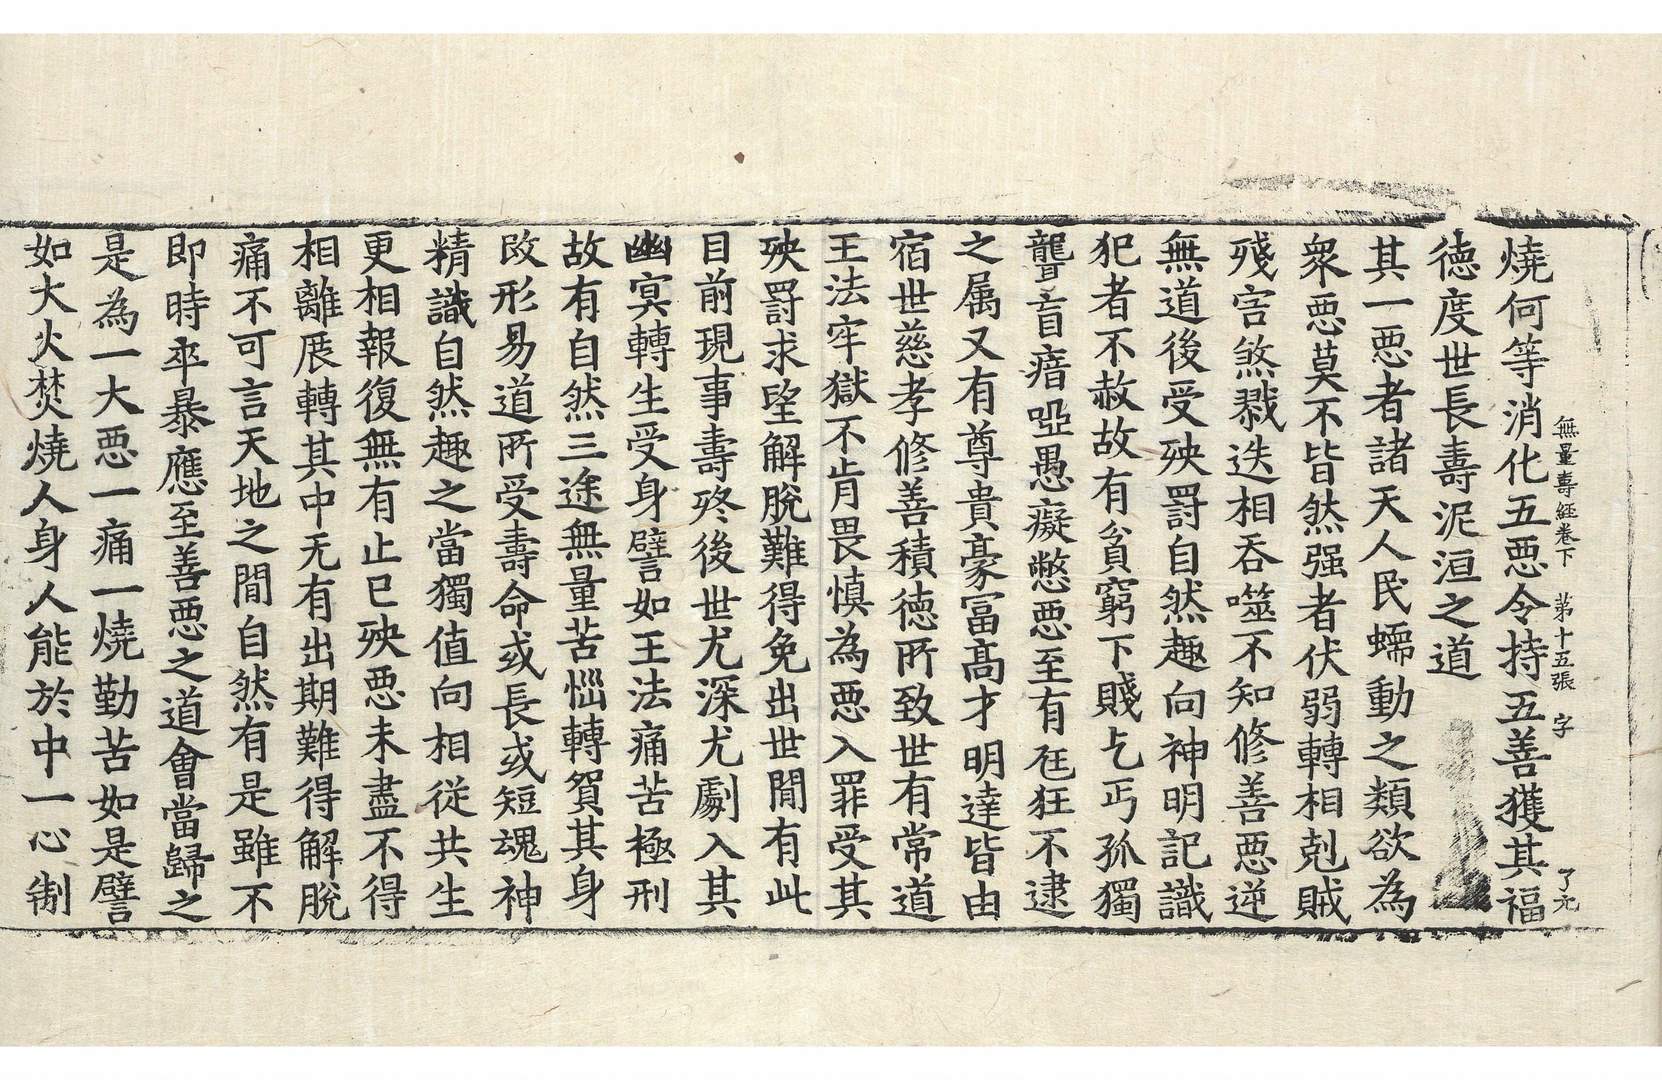 無量壽經卷下 第十五張 字 了元
燒何等消化五惡令持五善獲其福
徳度世長壽泥洹之道
其一惡者諸天人民蠕動之類欲為
衆惡莫不皆然强者伏弱轉相剋賊
殘害煞戮迭相吞噬不知修善惡逆
無道後受殃罸自然趣向神明記識
犯者不赦故有貧窮下賤乞丐孤獨
聾盲瘖啞愚癡憋惡至有尫狂不逮
之属又有尊貴豪富髙才明達皆由
宿世慈孝修善積徳所致世有常道
王法牢獄不肯畏慎為惡入罪受其
殃罸求望解脫難得免出世閒有此
目前現事壽終後世尤深尤劇入其
幽冥轉生受身譬如王法痛苦極刑
故有自然三途無量苦惱轉貿其身
改形易道所受壽命或長或短魂神
精識自然趣之當獨值向相從共生
更相報復無有止已殃惡未盡不得
相離展轉其中无有出期難得解脫
痛不可言天地之閒自然有是雖不
即時卒暴應至善惡之道會當歸之
是為一大惡一痛一燒勤苦如是譬
如大火焚燒人身人能於中一心制